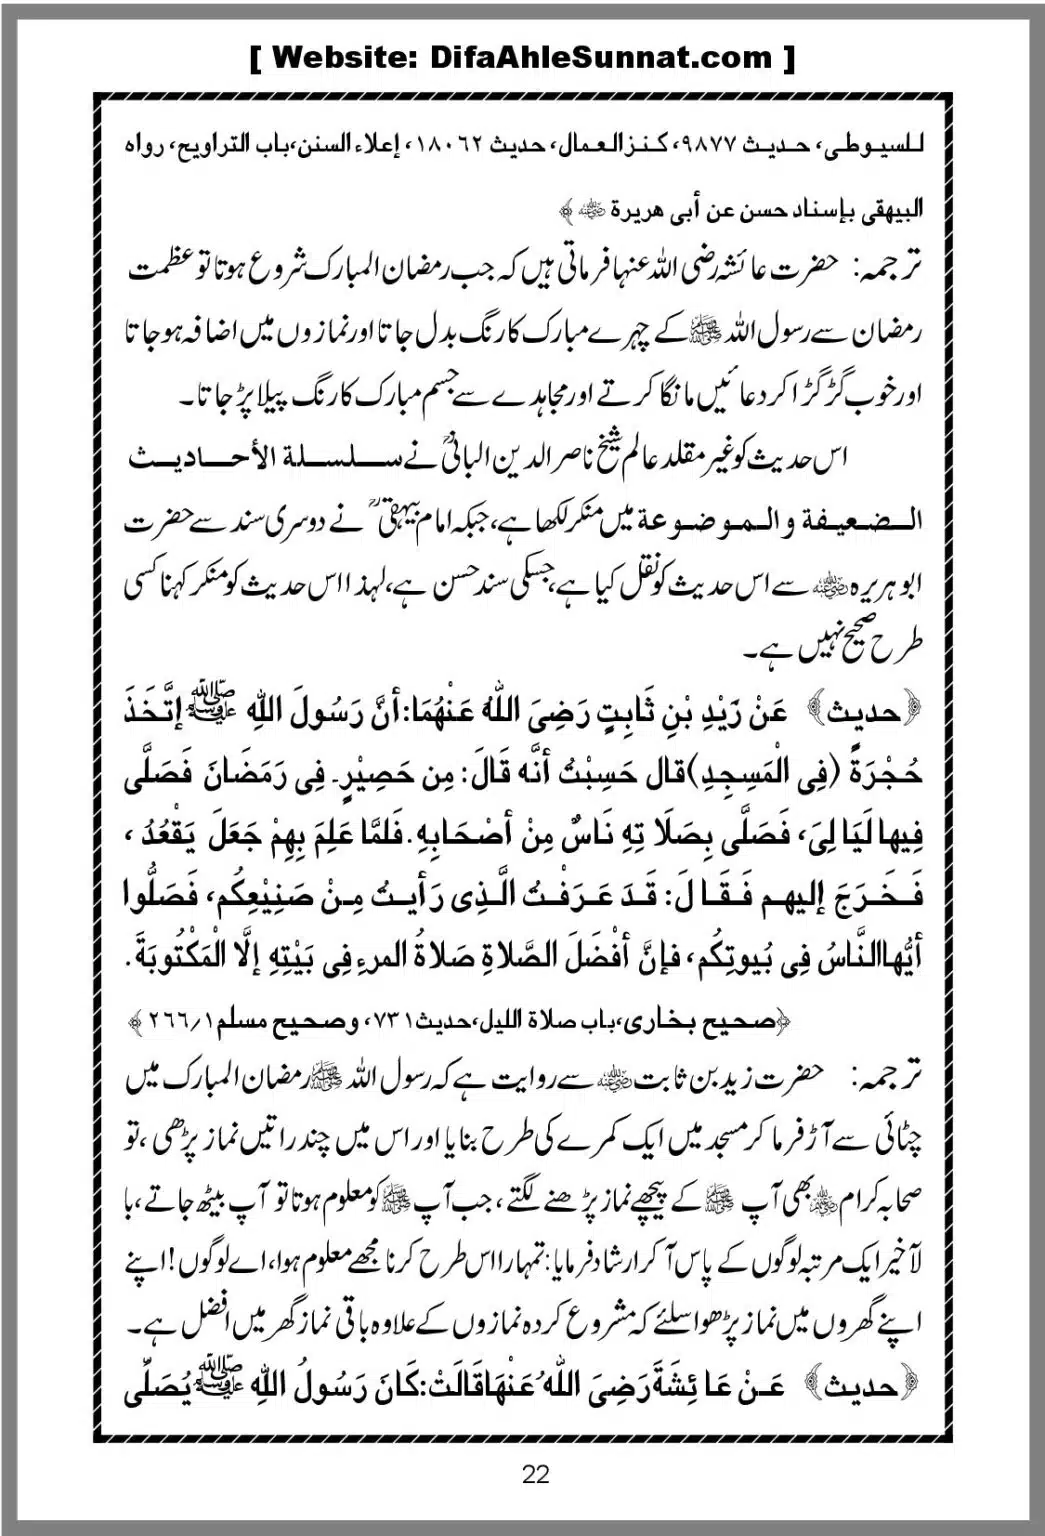 [ Website: DifaAhleSunnat.com ]
للسیوطی، حدیث ۹۸۷۷، کنزالعمال، حدیث ۱۸۰۶۲، إعلاء السنن،باب التراویح، رواہ
البیهقی بإسناد حسن عن أبی هریرة ؓ ﴾
ترجمہ: حضرت عائشہ رضی اللہ عنہا فرماتی ہیں کہ جب رمضان المبارک شروع ہوتا تو عظمت
رمضان سے رسول اللہ ﷺ کے چہرے مبارک کا رنگ بدل جاتا اور نمازوں میں اضافہ ہوجاتا
اور خوب گڑگڑا کر دعائیں مانگا کرتے اور مجاہدے سے جسم مبارک کا رنگ پیلا پڑ جاتا۔
اس حدیث کو غیر مقلد عالم شیخ ناصر الدین البانیؒ نے سلسلة الأحادیث
الضعیفة والموضوعة میں منکر لکھا ہے، جبکہ امام بیہقیؒ نے دوسری سند سے حضرت
ابو ہریرہ ؓ سے اس حدیث کو نقل کیا ہے، جسکی سند حسن ہے، لہذا اس حدیث کو منکر کہنا کسی
طرح صحیح نہیں ہے۔
﴿حدیث﴾ عَنْ زَیْدِ بْنِ ثَابِتٍ رَضِیَ اللّٰهُ عَنْهُمَا:أنَّ رَسُولَ اللهِ ﷺ إتَّخَذَ
حُجْرَةً (فِی الْمَسِجِدِ)قال حَسِبْتُ أنَّه قَالَ: مِن حَصِیْرٍ۔ فِی رَمَضَانَ فَصَلَّی
فِیها لَیَالِیَ، فَصَلَّی بِصَلَا تِهِ نَاسٌ مِنْ أصْحَابِهِ.فَلمَّا عَلِمَ بِهِمْ جَعَلَ یَقْعُدُ ،
فَخَرَجَ إلیهم فَقَالَ: قَدَ عَرَفْتُ الَّذِی رَأیتُ مِنْ صَنِیْعِکُم، فَصَلُّوا
أیُّهاالنَّاسُ فِی بُیوتِکُم، فإنَّ أفْضَلَ الصَّلاةِ صَلاةُ المرءِ فِی بَیْتِهِ إلَّا الْمَکْتُوبَةَ.
﴿صحیح بخاری،باب صلاة اللیل،حدیث۷۳۱، وصحیح مسلم۲۶۶/۱﴾
ترجمہ: حضرت زید بن ثابت ؓ سے روایت ہے کہ رسول اللہ ﷺ رمضان المبارک میں
چٹائی سے آڑ فرما کر مسجد میں ایک کمرے کی طرح بنایا اور اس میں چند راتیں نماز پڑھی ،تو
صحابہ کرام ؓ بھی آپ ﷺ کے پیچھے نماز پڑھنے لگتے، جب آپ ﷺ کو معلوم ہوتا تو آپ بیٹھ جاتے، با
لآخیر ایک مرتبہ لوگوں کے پاس آکر ارشاد فرمایا: تمہارا اس طرح کرنا مجھے معلوم ہوا، اے لوگوں! اپنے
اپنے گھروں میں نماز پڑھو اسلئے کہ مشروع کردہ نمازوں کے علاوہ باقی نماز گھر میں افضل ہے۔
﴿حدیث﴾ عَنْ عَائِشَةَ رَضِیَ اللّٰهُ عَنْهَاقَالَتْ:کَانَ رَسُولُ اللهِ ﷺ یُصَلِّی
22